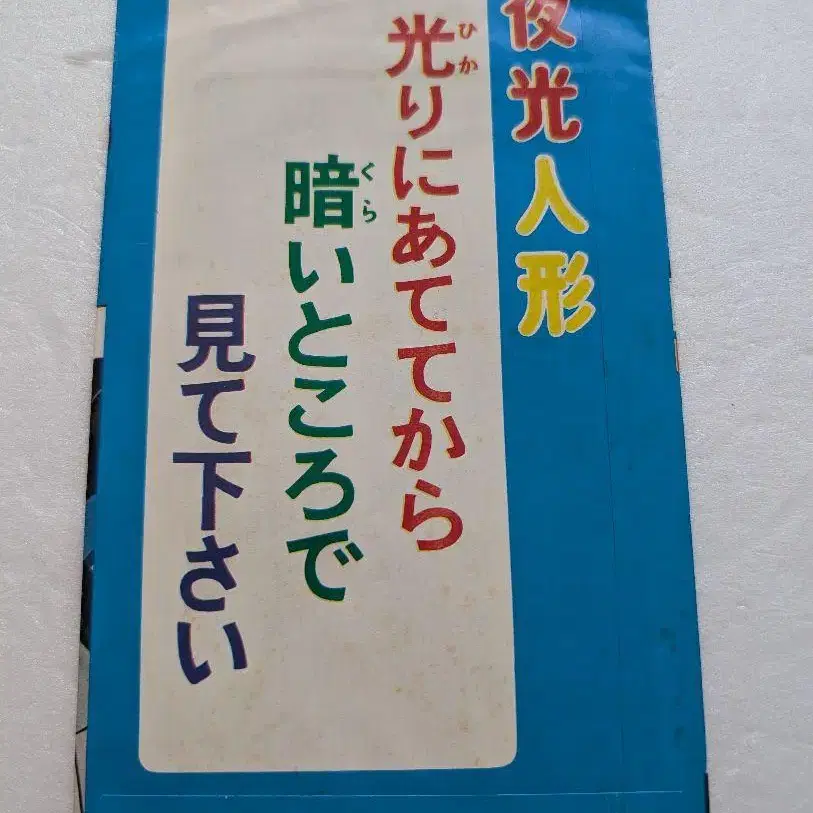 夜光人形
光りにあててから
ひか
暗いところで
くら
見て下さい